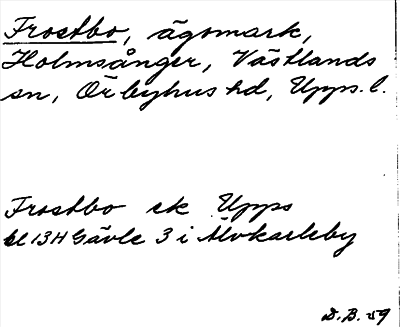 Frostbo, ägomark,
Holmsånger, Västlands
sn, Örbyhus hd, Upps. l.
Frostbo ek Upps
bl 13H Gävle 3 i Älvkarleby
D.B. 59